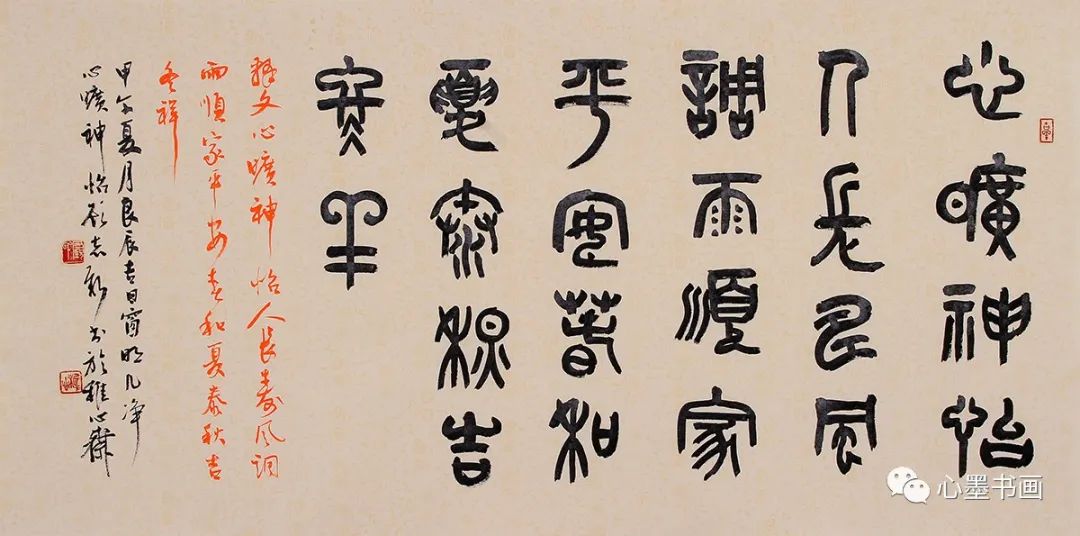 心曠神怡
人長壽風
調雨順家
平安春和
夏泰秋吉
冬羊
釋文心曠神怡人長壽風调
雨順家平安春和夏泰秋吉
冬祥
甲午夏月良辰吉日窗明几净
心曠神怡顾志新书於雅心齋
心墨书画